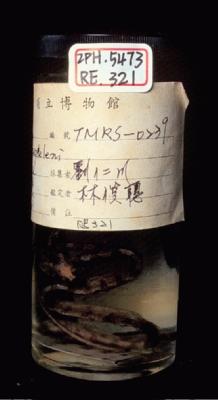 2PH.5473
RE.321
省立博物館
編號 TMRS-0239
採集者 劉仁川
鑑定者 林俊聰
備註
RE321